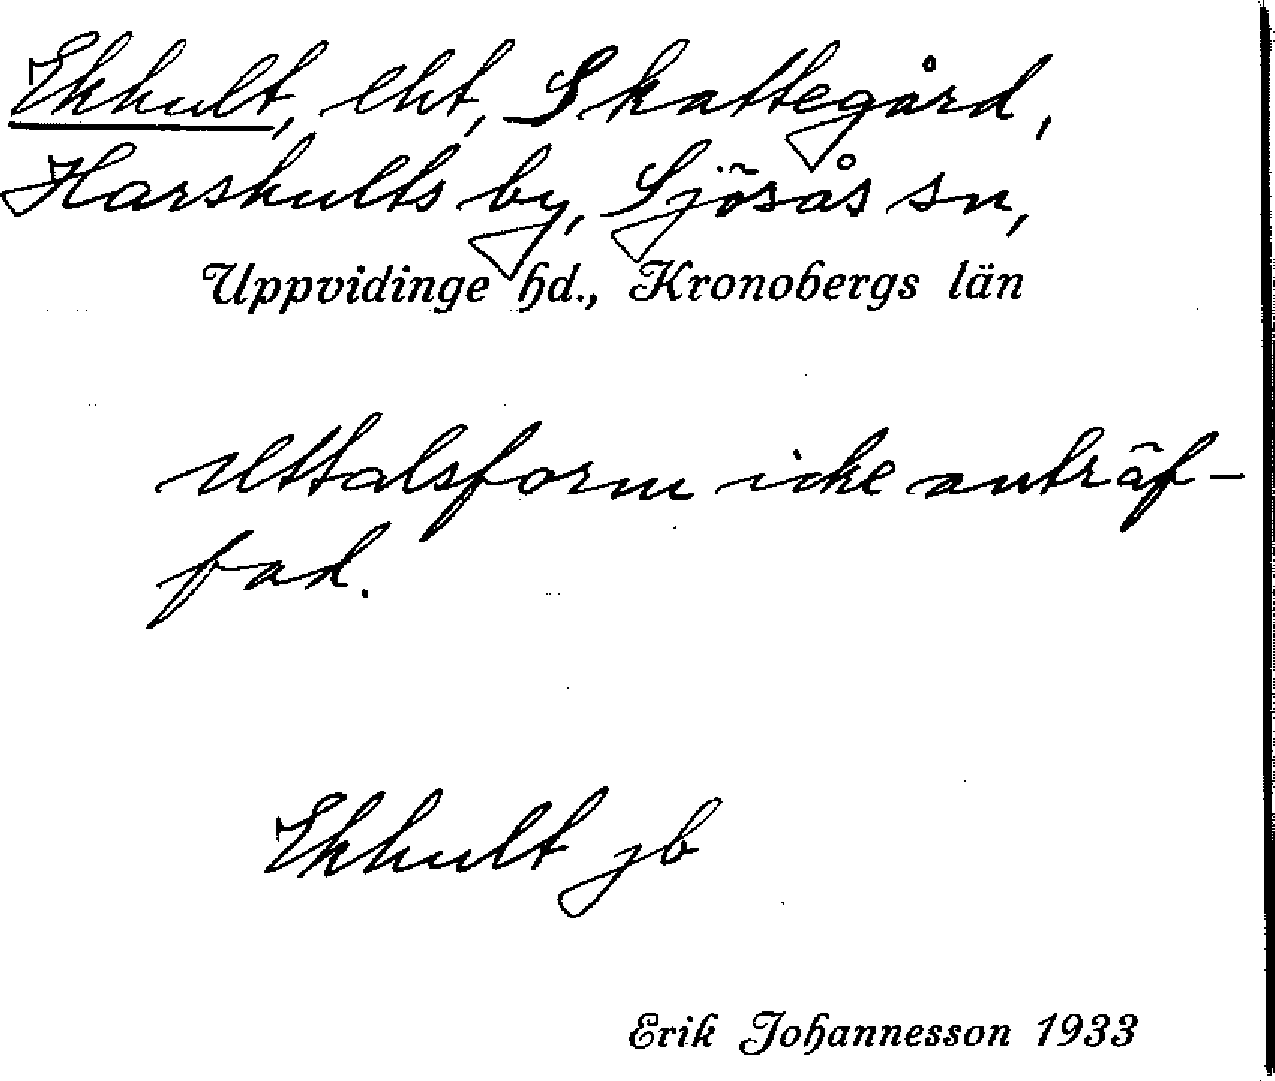 Ekhult, lht, Skattegård,
Harshults by, Sjösås sn,
Uppvidinge hd., Kronobergs län
Uttalsform icke anträf-
fad.
Ekhult jb
Erik Johannesson 1933